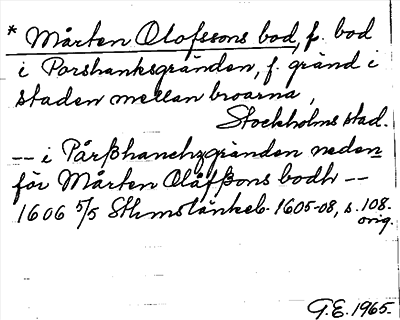 * Mårten Olofssons bod, f. bod
i Porshanksgränden, f. gränd i
staden mellan broarna,
Stockholms stad.
-- i Pårßhanchzgränden neden
för Mårten Olåfßons bodh --
1606 5/5 Sthmstänkeb. 1605-08, s. 108.
orig.
G.E. 1965.